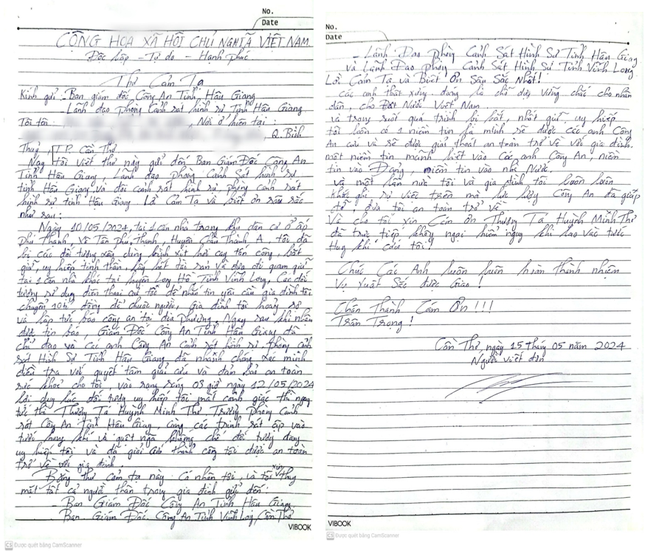 No.
Date
CỘNG HÒA XÃ HỘI CHỦ NGHĨA VIỆT NAM
Độc lập - Tự do - Hạnh phúc
Thư Cảm Tạ
Kính gửi: - Ban giám đốc Công An Tỉnh Hậu Giang
- Lãnh đạo phòng Cảnh sát hình sự Tỉnh Hậu Giang
Tôi tên Nơi ở hiện tại:
Q. Bình
Thuỷ, TP. Cần Thơ
Nay Tôi viết thư này gửi đến Ban Giám Đốc Công An
Tỉnh Hậu Giang, Lãnh đạo phòng Cảnh sát hình sự
tỉnh Hậu Giang và đội cảnh sát hình sự phòng cảnh sát
hình sự tỉnh Hậu Giang Lời Cảm Tạ và biết ơn sâu sắc
như sau:
Ngày 10/05/2024, tại 1 căn nhà trong khu dân cư ở ấp
Phú Thạnh, xã Tân Phú Thạnh, Huyện Châu Thành A, tôi đã
bị các đối tượng xông vào bắt giữ
tại 1 căn nhà khác tại huyện Long Hồ, Tỉnh Vĩnh Long. Các đối
tượng sử dụng điện thoại của tôi để nhắn tin yêu cầu gia đình tôi
chuyển 10 tỷ đồng để chuộc người. Gia đình tôi hoảng sợ
và lập tức báo công an tại địa phương. Ngay sau khi nhận
được tin báo Giám Đốc Công An Tỉnh Hậu Giang đã
chỉ đạo và các anh Công An cảnh sát hình sự phòng cảnh
sát Hình Sự Tỉnh Hậu Giang đã nhanh chóng xác minh
điều tra với quyết tâm giải cứu và đảm bảo an toàn
sức khoẻ cho tôi, và rạng sáng 03 giờ ngày 12/05/2024
lợi dụng lúc đối tượng uy hiếp tôi mất cảnh giác thì ngay
tức thì Thượng Tá Huỳnh Minh Thơ Trưởng Phòng Cảnh
sát Công An Tỉnh Hậu Giang, cùng các trinh sát ập vào
tước hung khí và quật ngã khống chế đối tượng đang
uy hiếp tôi và đã giải cứu thành công tôi được an toàn
trở về với gia đình.
Bằng thư cảm tạ này Cá nhân tôi, và tôi thay
mặt tất cả người thân trong gia đình gửi đến:
- Ban Giám Đốc Công An Tỉnh Hậu Giang
Ban Giám Đốc, Công An Tỉnh Vĩnh Long, Cần Thơ
VIBOOK
CS Được quét bằng CamScanner
No.
Date
- Lãnh Đạo phòng Cảnh Sát Hình Sự Tỉnh Hậu Giang
và Lãnh Đạo phòng Cảnh Sát Hình Sự Tỉnh Vĩnh Long
Lời Cảm Tạ và Biết Ơn Sâu Sắc Nhất!
Các anh thật xứng đáng là chỗ dựa vững chắc cho nhân
dân, cho Đất Nước Việt Nam
và trong suốt quá trình bị bắt, nhốt giữ, uy hiếp
tôi luôn có 1 niềm tin là mình sẽ được các anh Công
An cứu và sẽ được giải thoát an toàn trở về với gia đình.
một niềm tin mãnh liệt vào Các anh Công An, niềm
tin vào Đảng, niềm tin vào nhà Nước.
và một lần nữa tôi và gia đình tôi luôn luôn
Công An đã giúp
tôi an toàn trở về.
Và cho tôi xin Cảm Ơn Thượng Tá Huỳnh Minh Thơ
đã trực tiếp không ngại hiểm nguy khi lao vào tước
Hung khí cứu tôi!
Chúc Các Anh luôn luôn hoàn thành nhiệm
Vụ Xuất Sắc được Giao!
Chân Thành Cảm Ơn!!!
Trân Trọng!
Cần Thơ, ngày 15 tháng 05 năm 2024
Người viết đơn
VIBOOK
CS Được quét bằng CamScanner